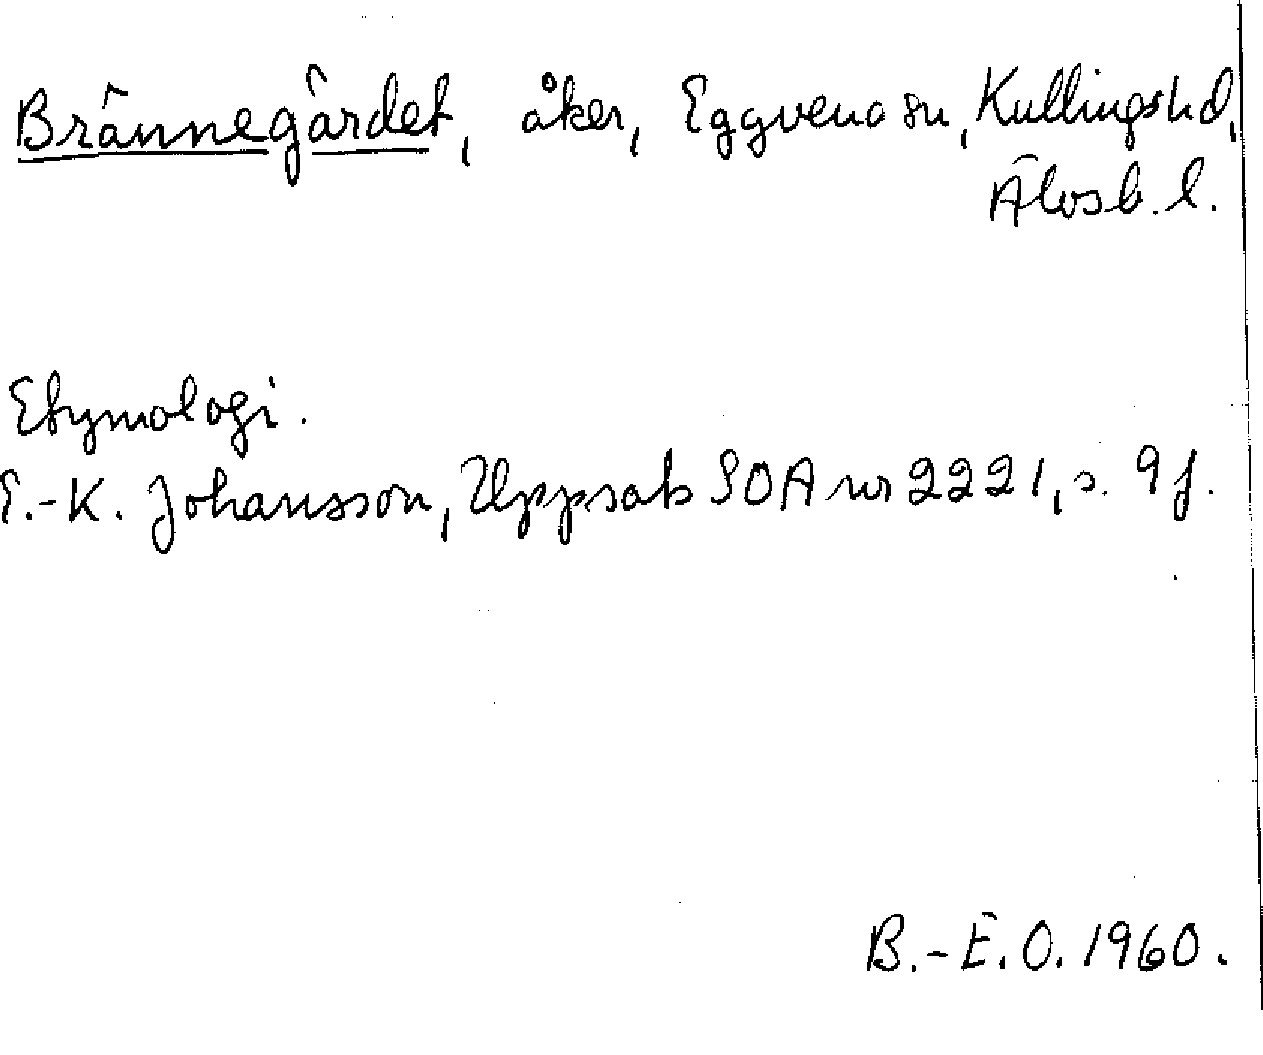 Brännegärdet, åker, Eggvena sn, Kullings hd,
Älvsb. l.
Etymologi.
E.-K. Johansson, Uppsats SOA nr 2221, s. 9 f.
B.-E. O. 1960.